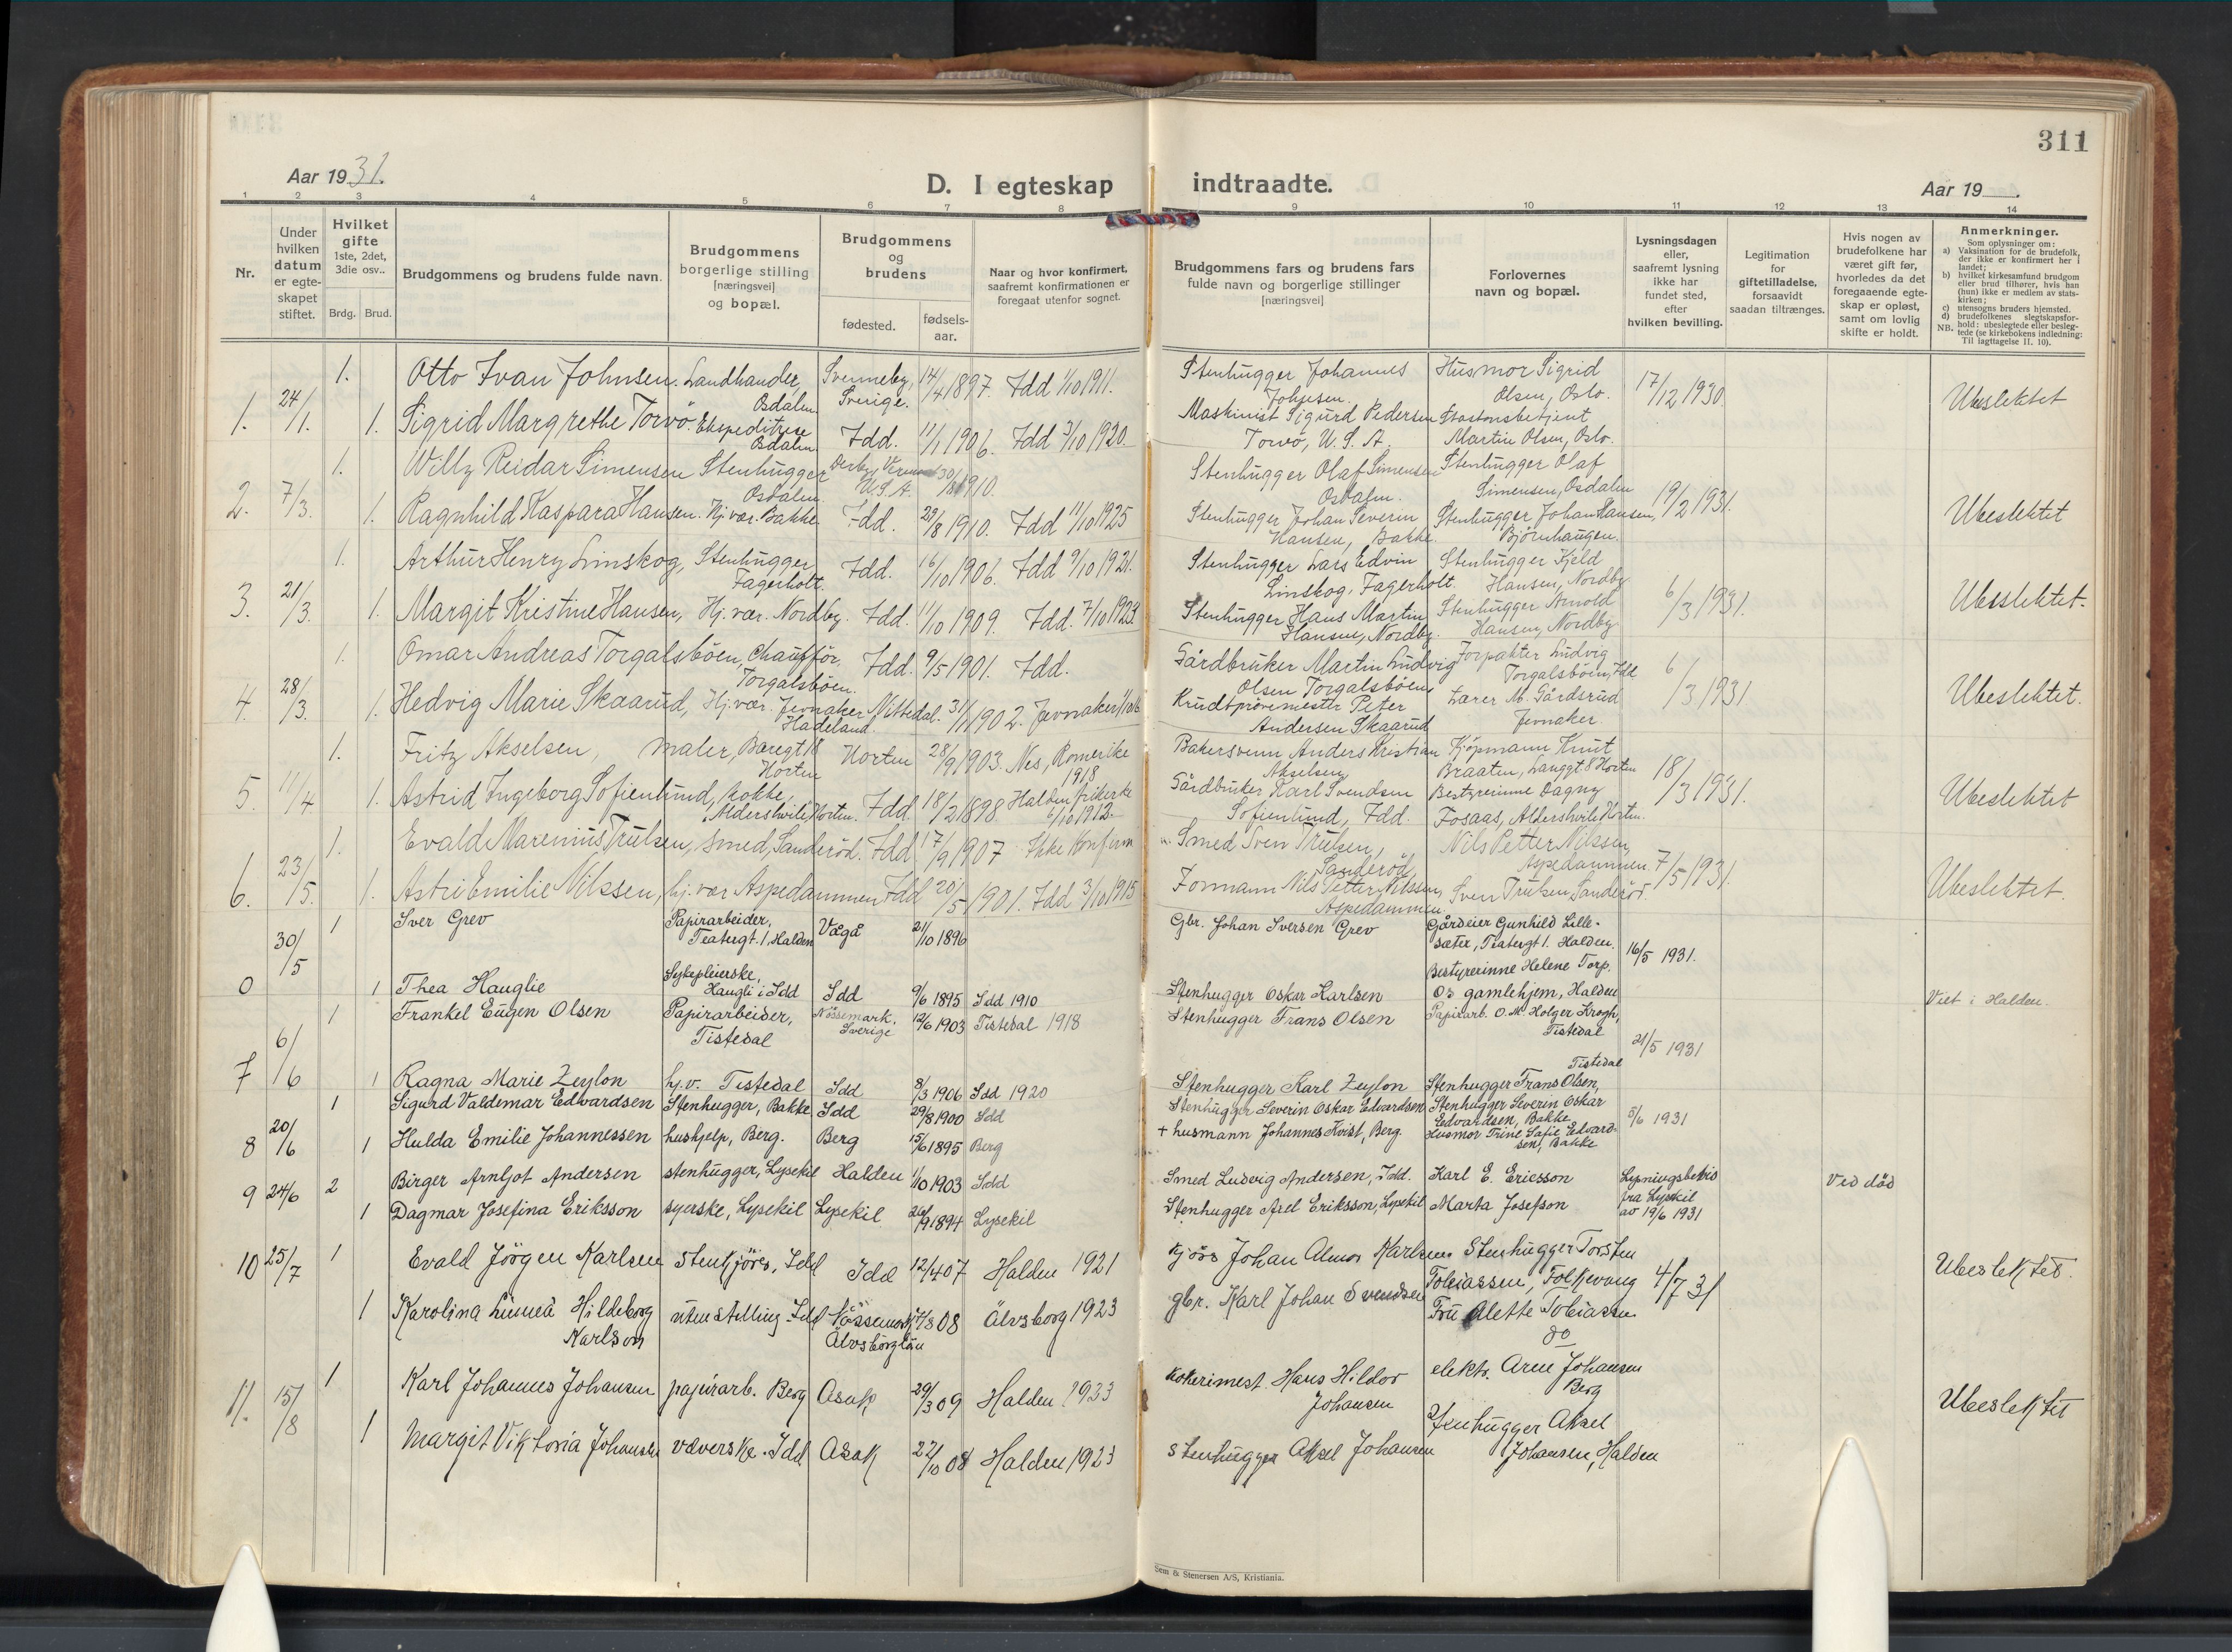 311
Aar 1931.
D. I egteskap indtraadte.
Aar 19 .
1 2 3 4 5 6 7 8 9 10 11 12 13 14
Nr.
Under hvilken datum er egteskapet stiftet.
Hvilket gifte 1ste, 2det, 3die osv..
Brdg. Brud.
Brudgommens og brudens fulde navn.
Brudgommens borgerlige stilling [næringsvei] og bopæl.
Brudgommens og brudens
fødested.
fødselsaar.
Naar og hvor konfirmert, saafremt konfirmationen er foregaat utenfor sognet.
Brudgommens fars og brudens fars fulde navn og borgerlige stillinger [næringsvei]
Forlovernes navn og bopæl.
Lysningsdagen eller, saafremt lysning ikke har fundet sted, efter hvilken bevilling.
Legitimation for giftetilladelse, forsaavidt saadan tiltrænges.
Hvis nogen av brudefolkene har været gift før, hvorledes da det foregaaende egteskap er opløst, samt om lovlig skifte er holdt.
Anmerkninger.
Som oplysninger om:
a) Vaksination for de brudefolk, der ikke er konfirmert her i landet;
b) hvilket kirkesamfund brudgom eller brud tilhører, hvis han (hun) ikke er medlem av statskirken;
c) utensogns bruders hjemsted.
d) brudefolkenes slegtskapsforhold: ubeslegtede eller beslegtede (se kirkebokens indledning:
NB. Til iagttagelse II. 10).
1. 24/1. 1. Otto Ivan Johnsen. Landhandler, Osdalen. Svenneby, Sverige. 14/4 1897. Idd 1/10 1911. Stenhugger Johannes Johnsen. Husmor Sigrid Olsen, Oslo. 17/12 1930 Ubeslektet
1. Sigrid Margrethe Torvö. Ekspeditrise Osdalen Idd. 11/1 1906. Idd 3/10 1920. Maskinist Sigurd Pedersen Torvö, U.S.A. Stasjonsbetjent Martin Olsen, Oslo.
2. 7/3. 1. Willy Reidar Simensen Stenhugger Osdalen. U.S.A. 1910. Stenhugger Olaf Simensen Osdalen. Stenhugger Olaf Simensen, Osdalen 19/2 1931. Ubeslektet
1. Ragnhild Kaspara Hansen. Hj.vær. Bakke Idd. 29/8 1910. Idd 11/10 1925 Stenhugger Johan Severin Hansen, Bakke. Stenhugger Johan Hansen, Björnhaugen.
3. 21/3. 1. Arthur Henry Linskog, Stenhugger Fagerholt. Idd. 16/10 1906. Idd 9/10 1921. Stenhugger Lars Edvin Linskog, Fagerholt. Stenhugger Kjeld Hansen, Nordby 6/3 1931. Ubesslektet.
1. Margit Kristine Hansen, Hj. vær. Nordby. Idd. 11/10 1909. Idd. 7/10 1923 Stenhugger Hans Martin Hansen, Nordby. Stenhugger Arnold Hansen, Nordby
4. 28/3. 1. Omar Andreas Torgalsböen, Chauffør, Torgalsböen. Idd. 9/5 1901. Idd. Gårdbruker Martin Ludvig Olsen Torgalsböen Forpakter Ludvig Torgalsböen, Idd 6/3 1931 Ubeslektet.
1. Hedvig Marie Skaarud, Hj.vær. Jevnaker Hadeland. Nittedal. 31/1 1902. Jevnaker Krudtprøvemester Peter Andersen Skaarud Lærer M. Gårdsrud Jevnaker.
5. 11/4. 1. Fritz Akselsen, maler, Horten Horten 28/9 1903. Nes, Romerike 1918 Bakersvenn Anders Kristian Akselsen Kjöpmann Knut Braaten, Langgt 8 Horten 18/3 1931. Ubeslektet
1. Astrid Ingeborg Sofienlund, kokke, Aldershvile, Horten. Idd. 18/2 1898. Halden frikirke 6/10 1912. Gårdbruker Karl Svendsen Sofienlund, Idd. Bestyrerinne Dagny Fosaas, Aldershvile Horten.
6. 23/5. 1. Evald Marenius Trulsen, smed, Sanderöd. Idd 17/9 1907 Ikke konfirm. Smed Sven Trulsen, Sanderöd Nils Petter Nilssen, Aspedammen. 7/5 1931. Ubeslektet.
1. Astri Emilie Nilssen, hj.vær Aspedammen Idd 20/5 1901. Idd 3/10 1915 Formann Nils Petter Nilssen, Aspedammen. Sven Trulsen Sanderöd.
0 30/5 1 Iver Grev Papirarbeider, Teatergt. 1, Halden Vågå 21/10 1896 Gbr. Johan Iversen Grev Gårdeier Gunhild Lillesæter, Teatergt 1. Halden. 16/5 1931.
1 Thea Hauglie Sykepleierske, Haugli i Idd Idd 9/6 1895 Idd 1910 Stenhugger Oskar Karlsen Bestyrerinne Helene Torp, Os gamlehjem, Halden Viet i Halden.
7 6/6 1 Frankel Eugen Olsen Papirarbeider, Tistedal Nössemark, Sverige 12/6 1903 Tistedal 1918 Stenhugger Frans Olsen Papirarb. O.M. Holger Krogh, Tistedal 21/5 1931
1 Ragna Marie Zeylon hj.v. Tistedal Idd 8/3 1906 Idd 1920 Stenhugger Karl Zeylon Stenhugger Frans Olsen, Tistedal
8 20/6 1 Sigurd Valdemar Edvardsen Stenhugger, Bakke Idd 29/8 1900 Idd Stenhugger Severin Oskar Edvardsen Stenhugger Severin Oskar Edvardsen, Bakke 5/6 1931
1 Hulda Emilie Johannessen hushjelp, Berg. Berg 15/6 1895 Berg + husmann Johannes Kvist, Berg. Husmor Trine Sofie Edvardsen, Bakke
9 24/6 2 Birger Arnljot Andersen stenhugger, Lysekil Halden 1/10 1903 Idd Smed Ludvig Andersen, Idd. Karl E. Ericsson Lysningsbevis fra Lysekil av 19/6 1931 Ved död
1 Dagmar Josefina Eriksson syerske, Lysekil Lysekil 26/9 1894 Lysekil Stenhugger Axel Eriksson, Lysekil Marta Josefson
10 25/7 1 Evald Jörgen Karlsen Stenkjörer, Idd Idd 12/4 07 Halden 1921 Kjörer Johan Karlsen Stenhugger Torsten Tobiassen, Folkevang 4/7 31 Ubeslektet.
1 Karolina Linneà Hildeborg Karlson uten stilling Idd Nössemark Älvsborg län 08 Älvsborg 1923 gbr. Karl Johan Svendsen Fru Alette Tobiassen do
11. 15/8 1 Karl Johannes Johansen papirarb. Berg Asak 29/3 09 Halden 1923 Kokerimest. Hans Hildor Johansen elektr. Arne Johansen Berg Ubeslektet
1 Margit Viktoria Johansen væverske. Idd Asak 22/10 08 Halden 1923 Stenhugger Aksel Johansen Stenhugger Aksel Johansen, Halden
Sem & Stenersen A/S, Kristiania.